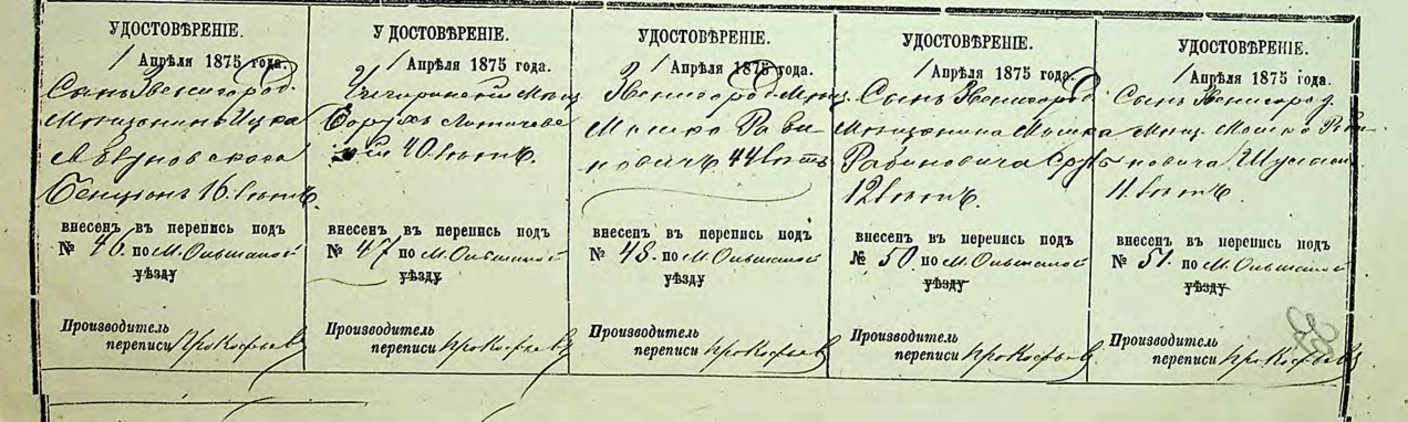 УДОСТОВѢРЕНІЕ.
1 Апрѣля 1875 года.
Сынъ Звенигород.
Мѣщанинъ Ицка
Бенціонъ 16. лѣтъ.
внесенъ въ перепись подъ
№ 46. по М. Ольшаной
уѣзду
Производитель
переписи Прокофьевъ
УДОСТОВѢРЕНІЕ.
1 Апрѣля 1875 года.
Чигиринскій Мѣщ.
Борухъ
40. лѣтъ.
внесенъ въ перепись подъ
№ 47 по М. Ольшаной
уѣзду
Производитель
переписи Прокофьевъ
УДОСТОВѢРЕНІЕ.
1 Апрѣля 1875 года.
Звенигород. Мѣщ.
Мошко Раби-
новичъ 44 лѣтъ
внесенъ въ перепись подъ
№ 48. по М. Ольшаной
уѣзду
Производитель
переписи Прокофьевъ
УДОСТОВѢРЕНІЕ.
1 Апрѣля 1875 года.
Сынъ Звенигород.
Мѣщанина Мошка
Рабиновича Сруль
12 лѣтъ.
внесенъ въ перепись подъ
№ 50. по М. Ольшаной
уѣзду
Производитель
переписи Прокофьевъ
УДОСТОВѢРЕНІЕ.
1 Апрѣля 1875 года.
Сынъ Звенигород.
Мѣщ. Мошко Раби-
новича
11. лѣтъ.
внесенъ въ перепись подъ
№ 51. по М. Ольшаной
уѣзду
Производитель
переписи Прокофьевъ